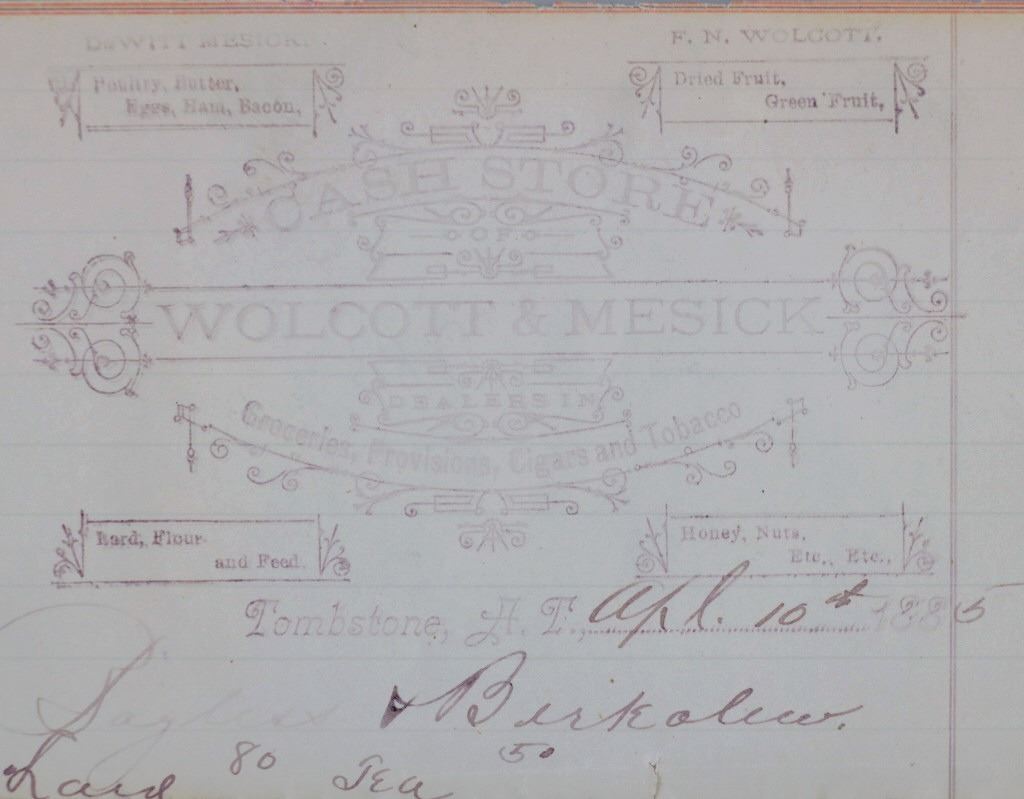 DEWITT MESICK. F. N. WOLCOTT.
Poultry, Butter,
Eggs, Ham, Bacon,
Dried Fruit,
Green Fruit,
CASH STORE
OF
WOLCOTT & MESICK
DEALERS IN
Groceries, Provisions, Cigars and Tobacco
Lard, Flour
and Feed.
Honey, Nuts,
Etc., Etc.,
Tombstone, A. T., Apl. 10th 1885
& Berkalew.
Lard 80 Tea 50